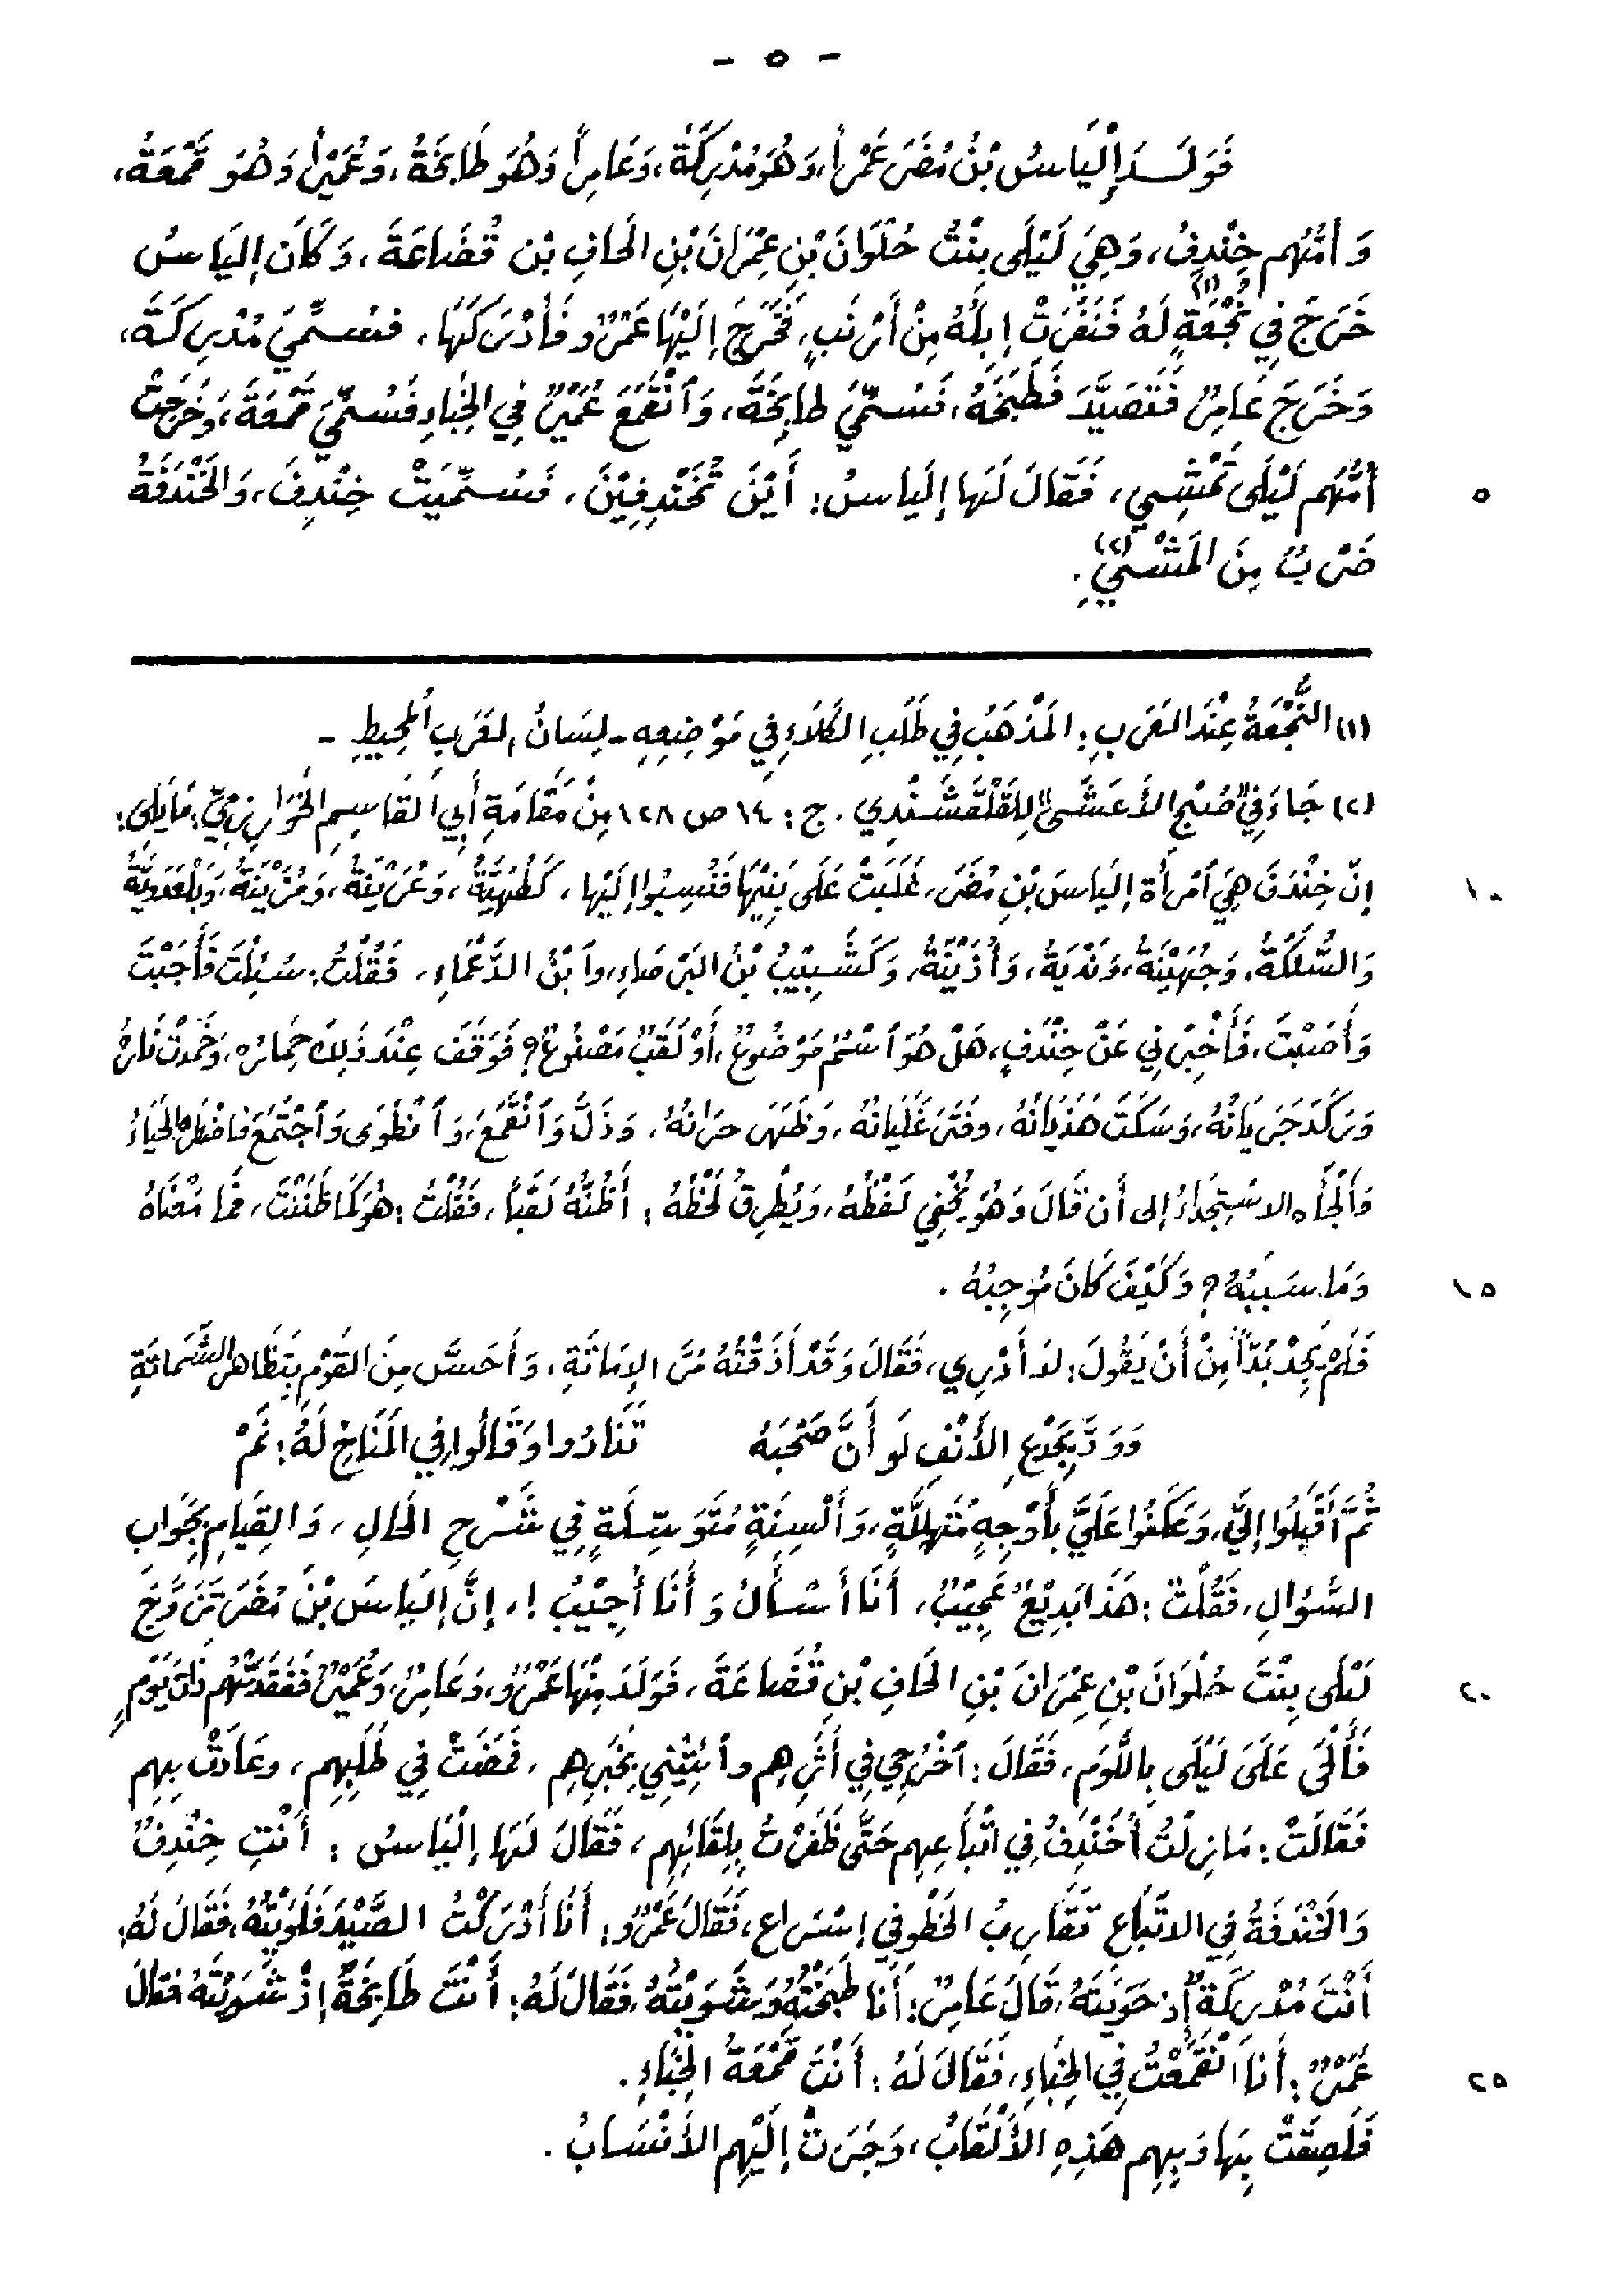 - ٥ -
فَوَلَدَ إِلْيَاسُ بْنُ مُضَرَ عَمْراً، وَهُوَ مُدْرِكَةُ، وَعَامِراً وَهُوَ طَابِخَةُ، وَعُمَيْراً وَهُوَ قَمْعَةُ،
وَأُمُّهُم خِنْدِفُ، وَهِيَ لَيْلَى بِنْتُ حُلْوَانَ بْنِ عِمْرَانَ بْنِ الحَافِ بْنِ قُضَاعَةَ، وَكَانَ إِليَاسُ
خَرَجَ فِي نُجْعَةٍ (١) لَهُ فَنَفَرَتْ إِبِلُهُ مِنْ أَرْنَبٍ، فَخَرَجَ إِلَيْهَا عَمْرٌو فَأَدْرَكَهَا، فَسُمِّيَ مُدْرِكَةَ،
وَخَرَجَ عَامِرٌ فَتَصَيَّدَ فَطَبَخَهُ، فَسُمِّيَ طَابِخَةَ، وَٱنْقَمَعَ عُمَيْرٌ فِي الخِبَاءِ فَسُمِّيَ قَمْعَةَ، وَخَرَجَتْ
أُمُّهُم لَيْلَى تَمْشِي، فَقَالَ لَهَا إِليَاسُ: أَيْنَ تُخَنْدِفِيْنَ، فَسُمِّيَتْ خِنْدِفَ، وَالخَنْدَفَةُ ٥
ضَرْبٌ مِنَ المَشْيِ (٢).
(١) النُّجْعَةُ عِنْدَ العَرَبِ: المَذْهَبُ فِي طَلَبِ الكَلَاءِ فِي مَوْضِعِهِ - لِسَانُ العَرَبِ المُحِيطِ -
(٢) جَاءَ فِي "صُبْحِ الأَعْشَى" لِلقَلْقَشَنْدِي. ج: ١٤ ص ١٢٨ مِنْ مَقَامَةِ أَبِي القَاسِمِ الخُوَارِزْمِيِّ: مَا يَلِي:
إِنّ خِنْدَفَ هِيَ ٱمْرَأَة إِليَاسَ بْنِ مُضَرَ، غَلَبَتْ عَلَى بَنِيْهَا فَنُسِبُوا إِلَيْهَا، كَطُهَيَّةُ، وَعُرَيْنَةُ، وَمُزَيْنَةُ، وَبَلْعَدَوِيَّةُ ١٠
وَالسُّلَكَةُ، وَجُهَيْنَةُ، وَنُدْبَةُ، وَأُذَيْنَةُ، وَكَشَبِيْبُ بْنُ البَرْصَاءِ، وٱبْنُ الدَّغْمَاءِ، فَقُلْتُ: سُئِلْتَ فَأَجَبْتَ
وَأَصَبْتَ، فَأَخْبِرْنِي عَنْ خِنْدَفٍ، هَلْ هُوَ ٱسْمٌ مَوْضُوعٌ، أَوْ لَقَبٌ مَصْنُوعٌ؟ فَوَقَفَ عِنْدَ ذَلِكَ حِمَارُه، وَخَمَدَتْ نَارُهُ
وَرَكَدَ جَرَيَانُهُ، وَسَكَتَ هَذَيَانُهُ، وفَتَرَ غَلَيَانُهُ، وَظَهَرَ حِرَانُهُ، وَذَلَّ وَٱنْقَمَعَ، وَٱنْطَوَى وَٱجْتَمَعَ فاضْطَرَّه الحَيَاءُ
وَأَلْجَأَه الاسْتِجْدَاءُ إلى أَن قَالَ وَهُوَ يُخْفِي لَفْظَهُ، وَيُطْرِقُ لَحْظَهُ: أَظُنُّهُ لَقَباً، فَقُلْتُ: هُوَ كَمَا ظَنَنْتَ، فَمَا مَعْنَاهُ
وَمَا سَبَبُهُ؟ وَكَيْفَ كَانَ مُوْجِبُهُ. ١٥
فَلَمْ يَجِدْ بُدّاً مِنْ أَنْ يَقُولَ: لَا أَدْرِي، فَقَالَ وَقَدْ أَذَقْتُهُ مُرَّ الإِمَاتَةِ، وَأَحَسَّ مِنَ القَوْمِ بِتَظَاهُرِ الشَّمَاتَةِ
وَوَدَّ بِجَدْعِ الأَنْفِ لَو أَنَّ صَحْبَهُ تَنَادُوا وَقَالُوا فِي المَنَاخِ لَهُ: نَمْ
ثُمَّ أَقْبَلُوا إِلَيَّ، وَعَكَفُوا عَلَيَّ بِأَوْجِهٍ مُتَهِلِّلَةٍ، وَأَلْسِنَةٍ مُتَوَسِّلَةٍ فِي شَرْحِ الحَالِ، وَالقِيَامِ بِجَوَابِ
السُّؤالِ، فَقُلْتُ: هَذَا بَدِيْعٌ عَجِيْبٌ، أَنَا أَسْأَلُ وَأَنَا أُجِيْبُ!، إِنَّ إِليَاسَ بْنَ مُضَرَ تَزَوَّجَ
لَيْلَى بِنْتَ حُلْوَانَ بْنِ عِمْرَانَ بْنِ الحَافِ بْنِ قُضَاعَةَ، فَوَلَدَ مِنْهَا عَمْرٌو، وَعَامِرٌ، وَعُمَيْرٌ فَفَقَدَتْهُم ذَاتَ يَوْمٍ ٢٠
فَأَلْحَى عَلَى لَيْلَى بِاللَّومِ، فَقَالَ: ٱخْرُجِي فِي أَثَرِهِم وٱئِتِيْنِي بِخَبَرِهِم، فَمَضَتْ فِي طَلَبِهِم، وعَادَتْ بِهِم
فَقَالَتْ: مَا زِلْتُ أُخَنْدِفُ فِي اتْبَاعِهِم حَتَّى ظَفَرْتُ بِلِقَائِهِم، فَقَالَ لَهَا إِلْيَاسُ: أَنْتِ خِنْدِفٌ
وَالخَنْدَفَةُ فِي الاتّبَاعِ تَقَارِبُ الخَطْوِ فِي إِسْرَاعٍ، فَقَالَ عَمْرٌو: أَنَا أَدْرَكْتُ الصَّيْدَ فَلَوَيْتُهُ، فَقَالَ لَهُ:
أَنْتَ مُدْرِكَةٌ إِذ حَوَيتَهُ، قَالَ عَامِرٌ: أَنَا طَبَخْتُهُ وَشَوَيْتُهُ، فَقَالَ لَهُ: أَنْتَ طَابِخَةٌ إِذْ شَوَيْتَهُ فَقَالَ
عُمَيْرٌ: أَنَا ٱنْقَمَعْتُ فِي الخِبَاءِ، فَقَالَ لَهُ: أَنْتَ قَمْعَةُ الخِبَاءِ. ٢٥
فَلَصِقَتْ بِهَا وَبِهِم هَذِهِ الأَلْقَابُ، وَجَرَتْ إِلَيْهِم الأَنْسَابُ.